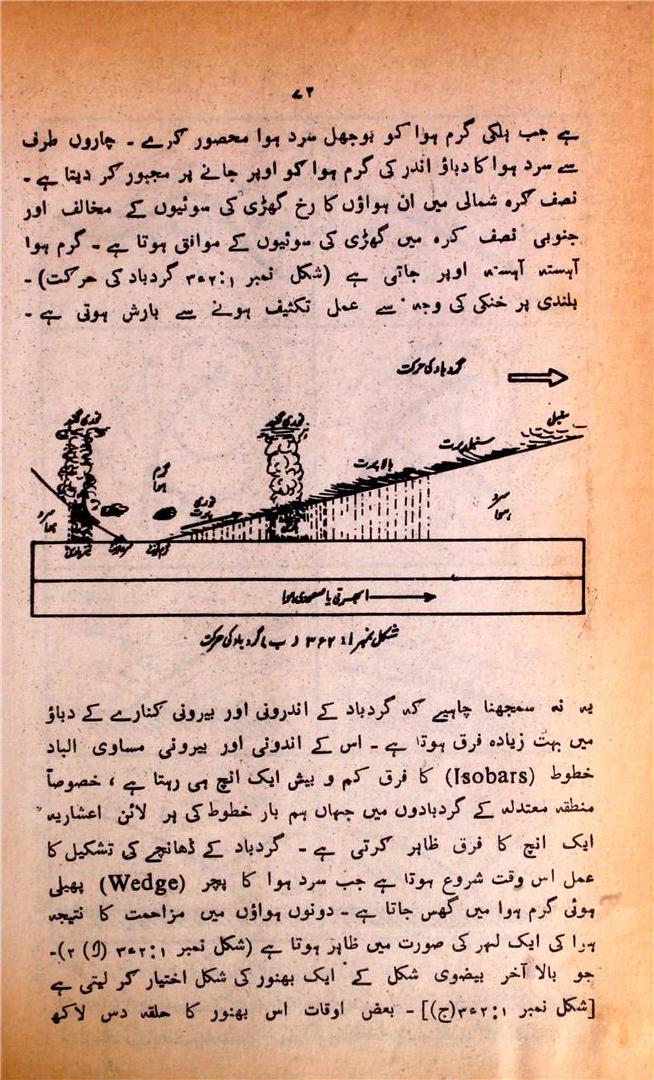 ۷۲
ہے جب ہلکی گرم ہوا کو بوجھل سرد ہوا محصور کرے ۔ چاروں طرف
سے سرد ہوا کا دباؤ اندر کی گرم ہوا کو اوپر جانے پر مجبور کر دیتا ہے ۔
نصف کرہ شمالی میں ان ہواؤں کا رخ گھڑی کی سوئیوں کے مخالف اور
جنوبی نصف کرہ میں گھڑی کی سوئیوں کے موافق ہوتا ہے ۔ گرم ہوا
آہستہ آہستہ اوپر جاتی ہے (شکل نمبر ۳ء۲:۱ گردباد کی حرکت) ۔
بلندی پر خنکی کی وجہ سے عمل تکثیف ہونے سے بارش ہوتی ہے ۔
گردباد کی حرکت
گرم ہوا
بالا پرت
سرد ہوا
سرد ہوا
شکل نمبر ۳ء۲:۱ ( ب ) گردباد کی حرکت
یہ نہ سمجھنا چاہیے کہ گردباد کے اندرونی اور بیرونی کنارے کے دباؤ
میں بہت زیادہ فرق ہوتا ہے ۔ اس کے اندونی اور بیرونی مساوی الباد
خطوط (Isobars) کا فرق کم و بیش ایک انچ ہی رہتا ہے ، خصوصاً
منطقہ معتدلہ کے گردبادوں میں جہاں ہم بار خطوط کی ہر لائن اعشاریہ
ایک انچ کا فرق ظاہر کرتی ہے ۔ گردباد کے ڈھانچے کی تشکیل کا
عمل اس وقت شروع ہوتا ہے جب سرد ہوا کا پچر (Wedge) پھیلی
ہوئی گرم ہوا میں گھس جاتا ہے ۔ دونوں ہواؤں میں مزاحمت کا نتیجہ
ہوا کی ایک لہر کی صورت میں ظاہر ہوتا ہے (شکل نمبر ۳ء۲:۱ (ا) ۲) ۔
جو بالا آخر بیضوی شکل کے ایک بھنور کی شکل اختیار کر لیتی ہے
[شکل نمبر ۳ء۲:۱(ج)] ۔ بعض اوقات اس بھنور کا حلقہ دس لاکھ